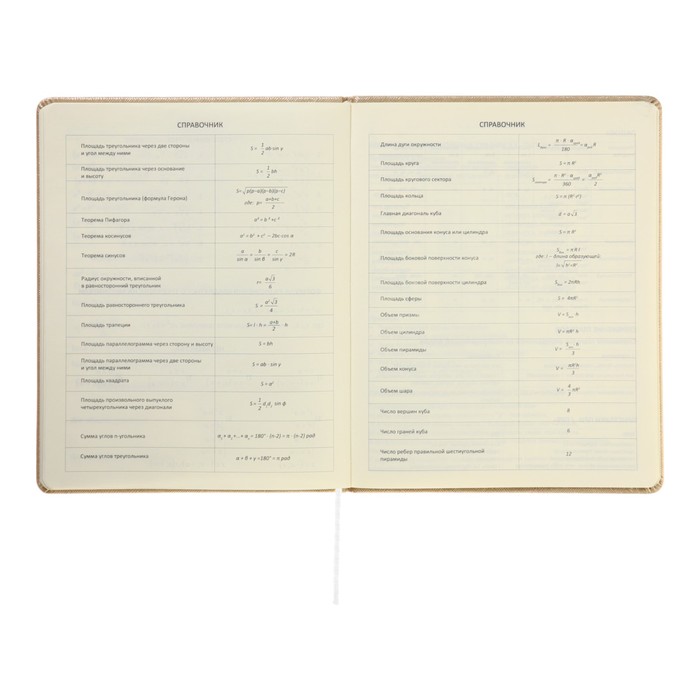 СПРАВОЧНИК
Площадь треугольника через две стороны
и угол между ними
S = 1/2 ab·sin γ
Площадь треугольника через основание
и высоту
S = 1/2 bh
Площадь треугольника (формула Герона)
S=√p(p−a)(p−b)(p−c)
где: p= a+b+c/2
Теорема Пифагора
a² = b² + c²
Теорема косинусов
a² = b² + c² − 2bc cos α
Теорема синусов
a/sin α = b/sin β = c/sin γ = 2R
Радиус окружности, вписанной
в равносторонний треугольник
r= a√3/6
Площадь равностороннего треугольника
S = a²√3/4
Площадь трапеции
S= l · h = a+b/2 · h
Площадь параллелограмма через сторону и высоту
S = bh
Площадь параллелограмма через две стороны
и угол между ними
S = ab · sin γ
Площадь квадрата
S = a²
Площадь произвольного выпуклого
четырехугольника через диагонали
S = 1/2 d₁d₂ sin φ
Сумма углов n угольника
a₁ + a₂ +...+ aₙ = 180° · (n-2) = π · (n-2) рад
Сумма углов треугольника
α + β + γ =180° = π рад
СПРАВОЧНИК
Длина дуги окружности
Площадь круга
S = π R²
Площадь кругового сектора
Площадь кольца
Главная диагональ куба
d = a√3
Площадь основания конуса или цилиндра
S = π R²
Площадь боковой поверхности конуса
где: l — длина образующей,
Площадь боковой поверхности цилиндра
Площадь сферы
S = 4πR²
Объем призмы
Объем цилиндра
V = πR² h
Объем пирамиды
Объем конуса
V = πR²h/3
Объем шара
V = 4/3 πR³
Число вершин куба
8
Число граней куба
6
Число ребер правильной шестиугольной
пирамиды
12